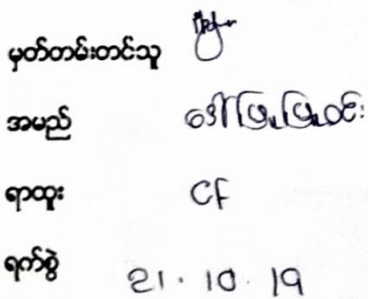 မှတ်တမ်းတင်သူ
အမည် ဒေါ်ဖြူဖြူဝင်း
ရာထူး CF
ရက်စွဲ 21.10.19